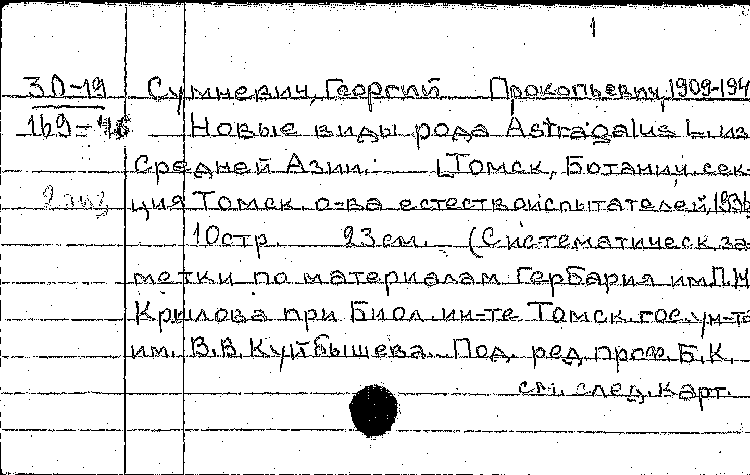 1
30-19 Сумневич, Георгий Прокопьевич, 1909-194
169- Новые виды рода Astragalus L. из
Средней Азии. [Томск, Ботанич. сек-
2 экз ция Томск. о-ва естествоиспытателей, 1936
10стр. 23 см. (Систематическ. за-
метки по материалам Гербария им. П.Н.
Крылова при Биол. ин-те Томск. гос. ун-та
им. В.В. Куйбышева. Под. ред. проф. Б.К.
см. след. карт.